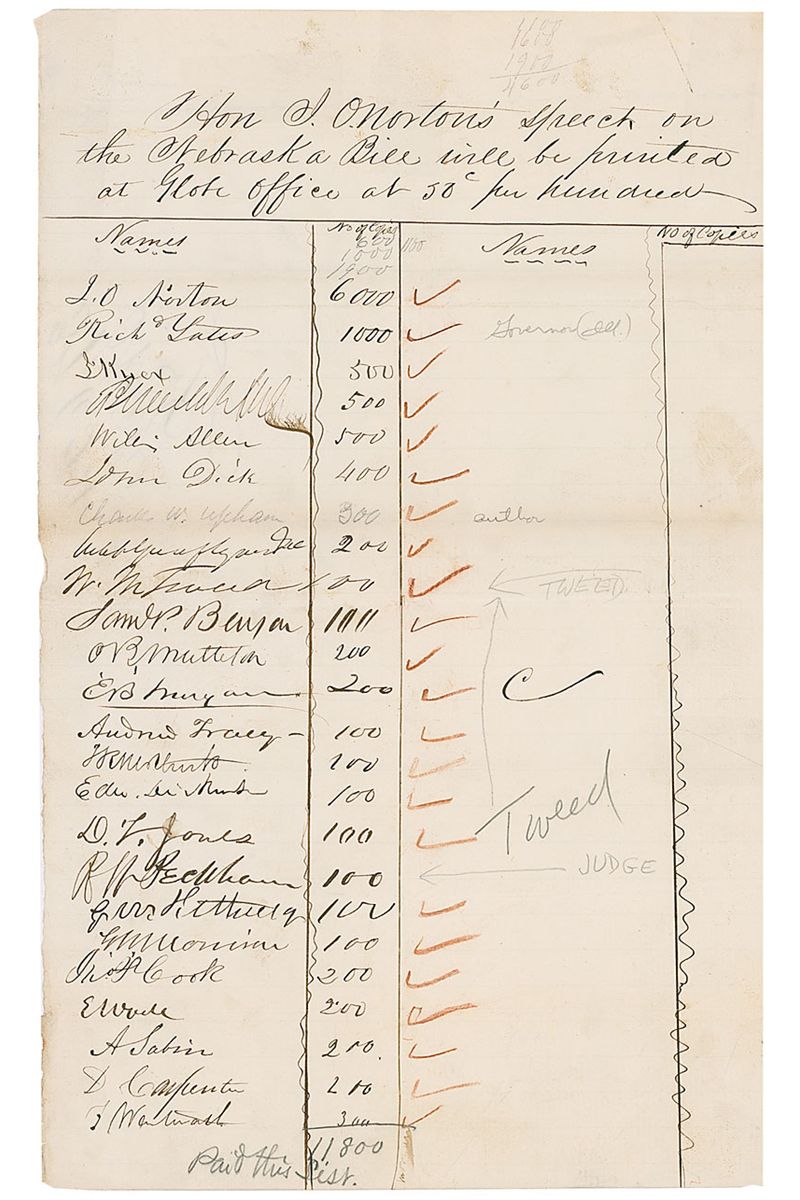 1600
1900
4600
Hon J. O Norton's speech on
the Nebraska Bill will be printed
at Globe Office at 50c per hundred
Names No of Copies Names No of Copies
600 1100
1000
1900
J. O Norton 6000
Richd Yates 1000 Governor (Ill.)
J Knox 500
500
Willis Allen 500
John Dick 400
Charles W. Upham 300 author
200
W. M Tweed 100 TWEED
Saml P. Benson 100
O B Matteson 200
E B Morgan 200 C
Andrew Tracy - 100
100
Edw. 100
Tweed
D. T. Jones 100
R W Peckham 100 JUDGE
100
G W Morrison 100
200
Cook
E Wade 200
A Sabin 200.
D Carpenter 200
J Wentworth 300
11,800
Paid this List.